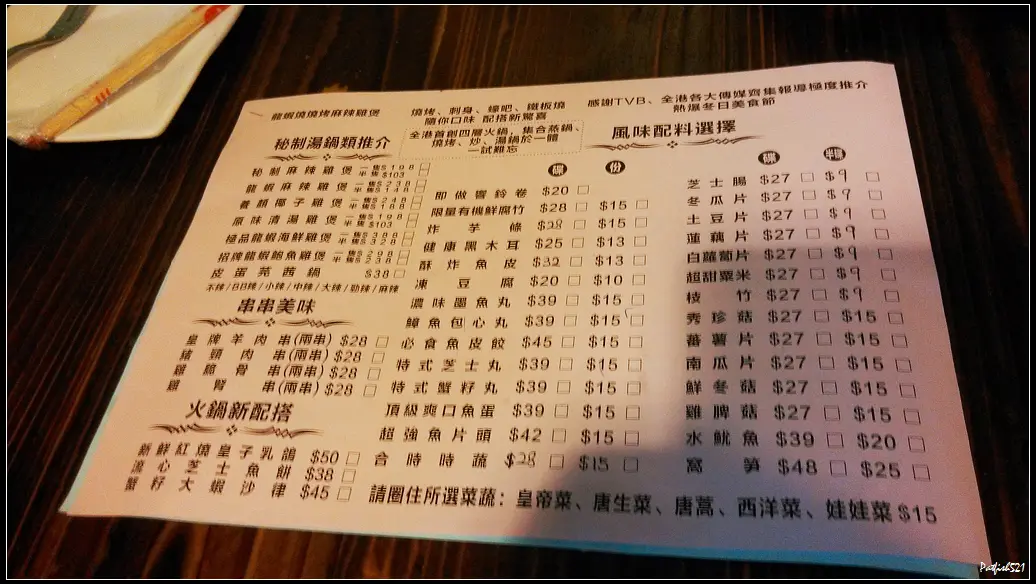 龍蝦燒燒烤麻辣雞煲
燒烤、刺身、蠔吧、鐵板燒
隨你口味 配搭新驚喜
感謝TVB、全港各大傳媒齊集報導極度推介
熱爆冬日美食節
全港首創四層火鍋，集合蒸鍋、
燒烤、炒、湯鍋於一體
一試難忘
秘制湯鍋類推介
秘制麻辣雞煲 一隻$198 半隻$103 □
龍蝦麻辣雞煲 一隻$238 半隻$148 □
養顏椰子雞煲 一隻$248 半隻$188 □
原味清湯雞煲 一隻$198 半隻$103 □
極品龍蝦海鮮雞煲 一隻$388 半隻$328 □
招牌龍蝦鮑魚雞煲 一隻$298 半隻$238 □
皮蛋芫茜鍋 $38 □
不辣/BB辣/小辣/中辣/大辣/勁辣/麻辣
串串美味
皇牌羊肉串(兩串) $28 □
豬頸肉串(兩串) $28 □
雞膇骨串(兩串) $28 □
雞腎串(兩串) $28 □
火鍋新配搭
新鮮紅燒皇子乳鴿 $50 □
流心芝士魚餅 $38 □
蟹籽大蝦沙律 $45 □
風味配料選擇
碟 份
即做響鈴卷 $20 □
限量有機鮮腐竹 $28 □ $15 □
炸芋條 $28 □ $15 □
健康黑木耳 $25 □ $13 □
酥炸魚皮 $32 □ $13 □
凍豆腐 $20 □ $10 □
濃味墨魚丸 $39 □ $15 □
鱆魚包心丸 $39 □ $15 □
必食魚皮餃 $45 □ $15 □
特式芝士丸 $39 □ $15 □
特式蟹籽丸 $39 □ $15 □
頂級爽口魚蛋 $39 □ $15 □
超強魚片頭 $42 □ $15 □
合時時蔬 $28 □ $15 □
碟 半碟
芝士腸 $27 □ $9 □
冬瓜片 $27 □ $9 □
土豆片 $27 □ $9 □
蓮藕片 $27 □ $9 □
白蘿蔔片 $27 □ $9 □
超甜粟米 $27 □ $9 □
枝竹 $27 □ $9 □
秀珍菇 $27 □ $15 □
蕃薯片 $27 □ $15 □
南瓜片 $27 □ $15 □
鮮冬菇 $27 □ $15 □
雞脾菇 $27 □ $15 □
水魷魚 $39 □ $20 □
窩筍 $48 □ $25 □
請圈住所選菜蔬：皇帝菜、唐生菜、唐蒿、西洋菜、娃娃菜 $15
Patfish521